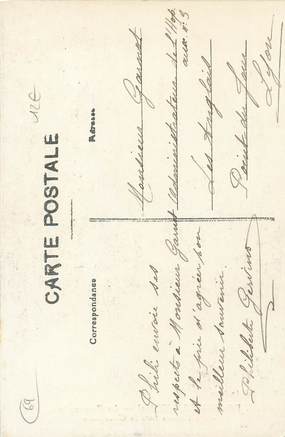 12€
CARTE POSTALE
Correspondance
Adresse
Phili envoie ses
respects à Monsieur Garnet
et le prie d'agréer son
meilleur souvenir.
Philibert
Monsieur Garnet
Administrateur de l'Hop.
aux. n° 3
Les Anglais
Point du Jour
Lyon
69